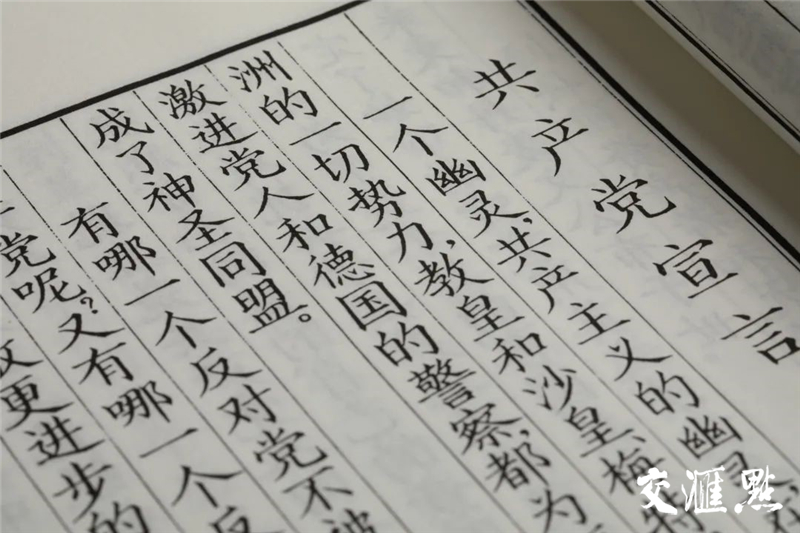 共产党宣言
一个幽灵,共产主义的幽灵
洲的一切势力,教皇和沙皇、梅特
激进党人和德国的警察,都为
成了神圣同盟。
有哪一个反对党不被
党呢?又有哪一个反
更进步的
交匯點